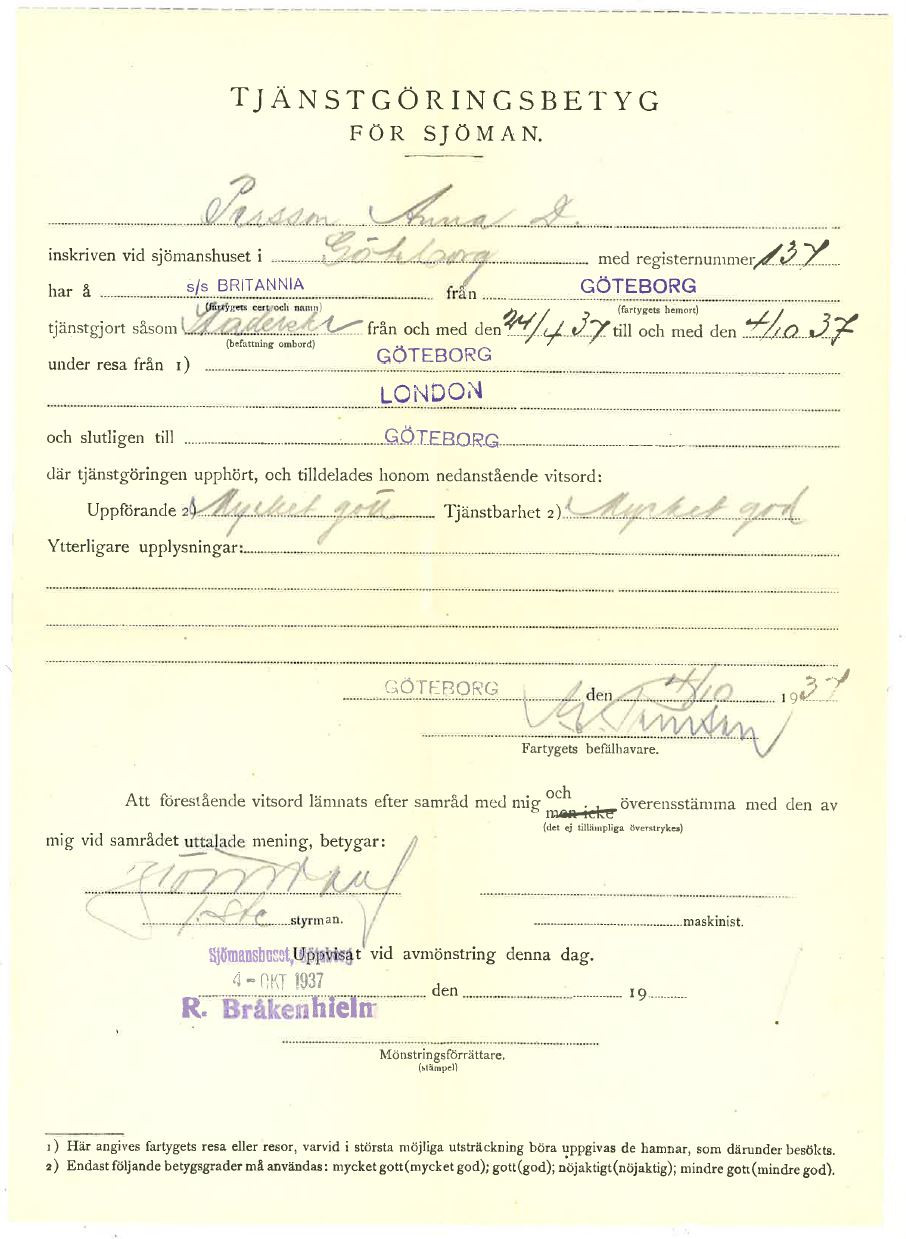 TJÄNSTGÖRINGSBETYG
FÖR SJÖMAN.
Persson Anna D.
inskriven vid sjömanshuset i Göteborg med registernummer 137
har å s/s BRITANNIA från GÖTEBORG
(fartygets cert och namn) (fartygets hemort)
tjänstgjort såsom från och med den 24/4 37 till och med den 4/10 37
(befattning ombord)
under resa från 1) GÖTEBORG
LONDON
och slutligen till GÖTEBORG
där tjänstgöringen upphört, och tilldelades honom nedanstående vitsord:
Uppförande 2) Mycket gott Tjänstbarhet 2) Mycket god
Ytterligare upplysningar:
GÖTEBORG den 4/10 1937
Fartygets befälhavare.
Att förestående vitsord lämnats efter samråd med mig och men icke överensstämma med den av
(det ej tillämpliga överstrykes)
mig vid samrådet uttalade mening, betygar:
1:ste styrman. maskinist.
Sjömanshuset, Göteborg Uppvisat vid avmönstring denna dag.
4 - OKT 1937
den 19
R. Bråkenhielm
Mönstringsförrättare.
(stämpel)
1) Här angives fartygets resa eller resor, varvid i största möjliga utsträckning böra uppgivas de hamnar, som därunder besökts.
2) Endast följande betygsgrader må användas: mycket gott (mycket god); gott (god); nöjaktigt (nöjaktig); mindre gott (mindre god).